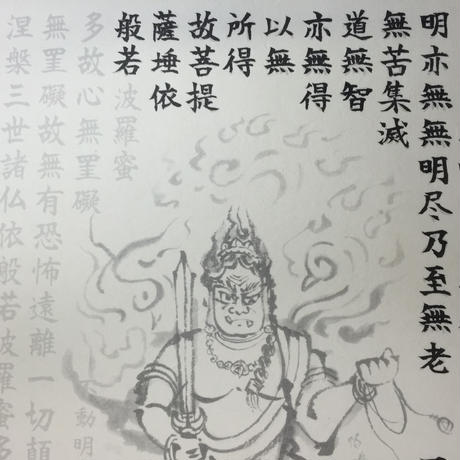 明亦無無明尽乃至無老
無苦集滅
道無智
亦無得
以無
所得
故菩提
薩埵依
般若波羅蜜
多故心無罣礙
無罣礙故無有恐怖遠離一切顛
涅槃三世諸仏依般若波羅蜜多
動明